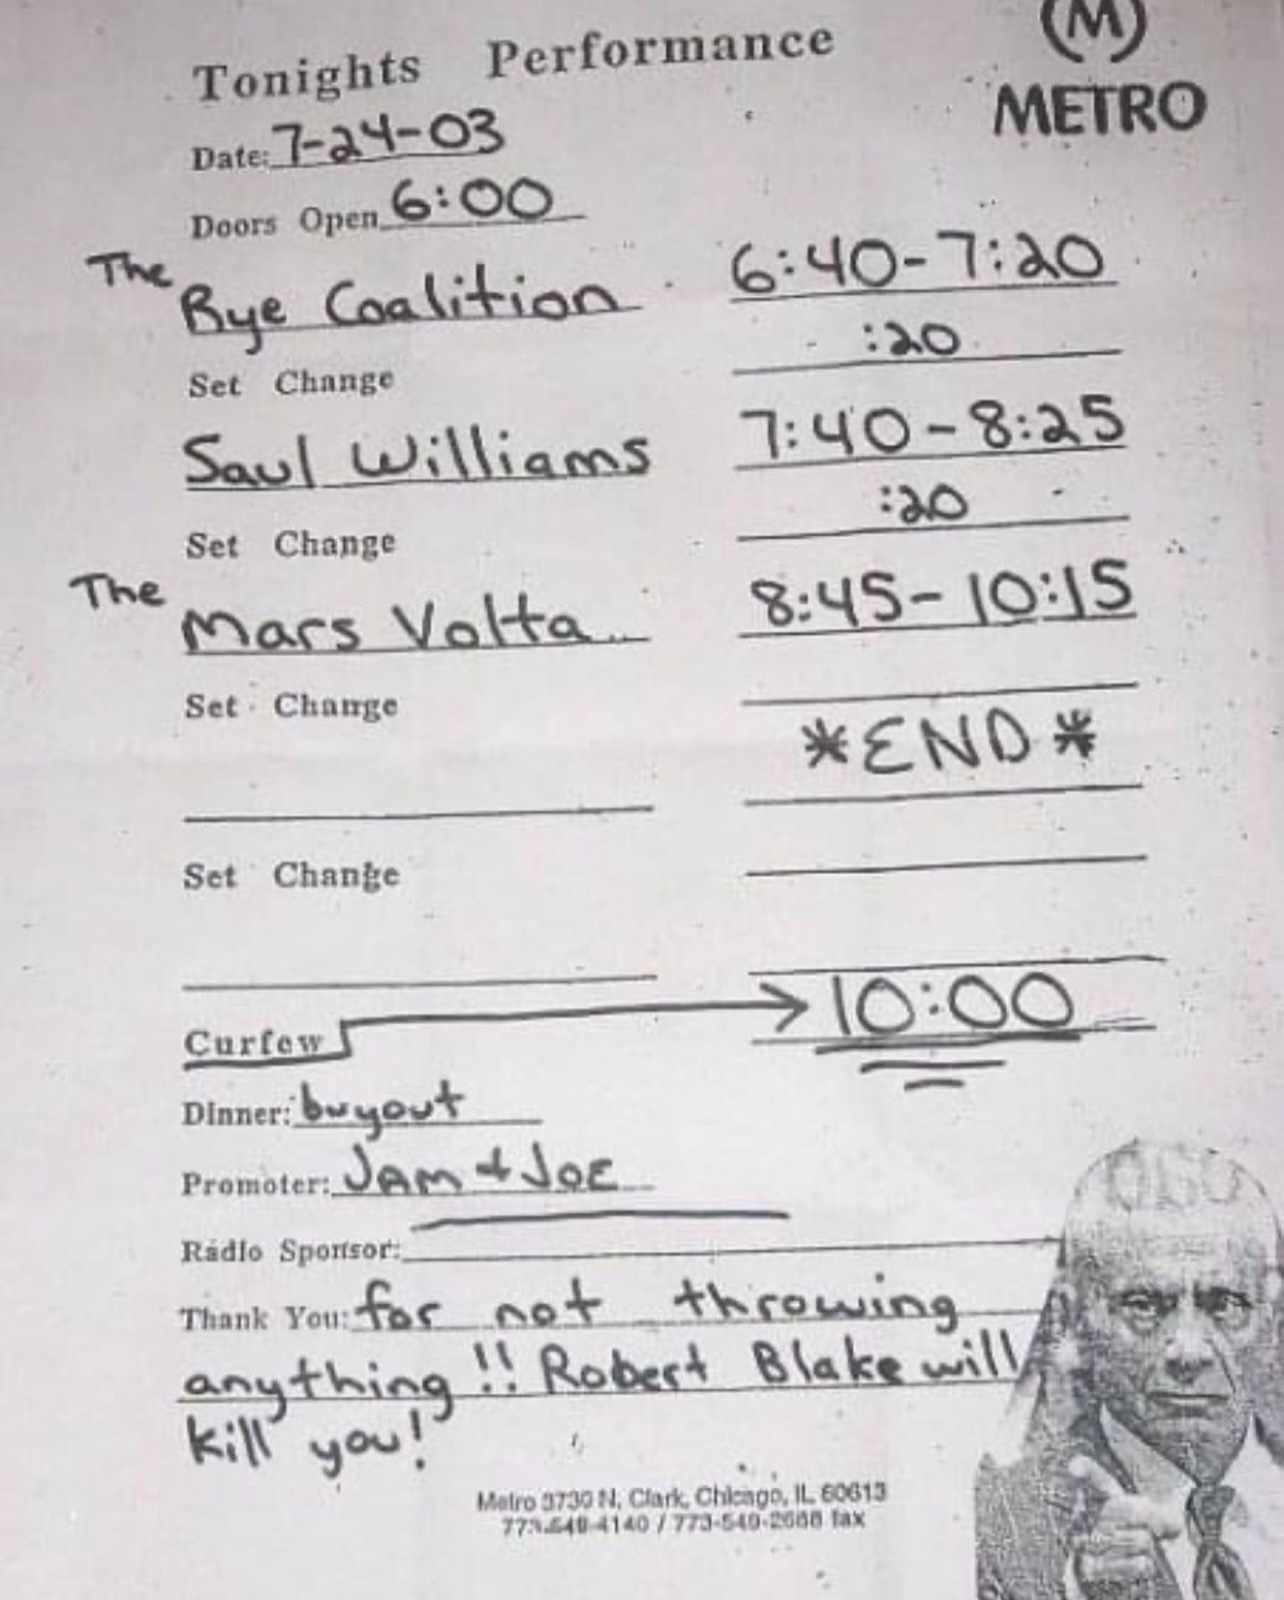 (M)
METRO
Tonights Performance
Date: 7-24-03
Doors Open 6:00
The Rye Coalition 6:40-7:20
Set Change :20
Saul Williams 7:40-8:25
Set Change :20
The Mars Volta 8:45-10:15
Set Change
*END*
Set Change
Curfew → 10:00
Dinner: buyout
Promoter: JAM + JOE
Radio Sponsor:
Thank You: for not throwing
anything!! Robert Blake will
kill you!
Metro 3730 N. Clark, Chicago, IL 60613
773-549-4140 / 773-549-2688 fax